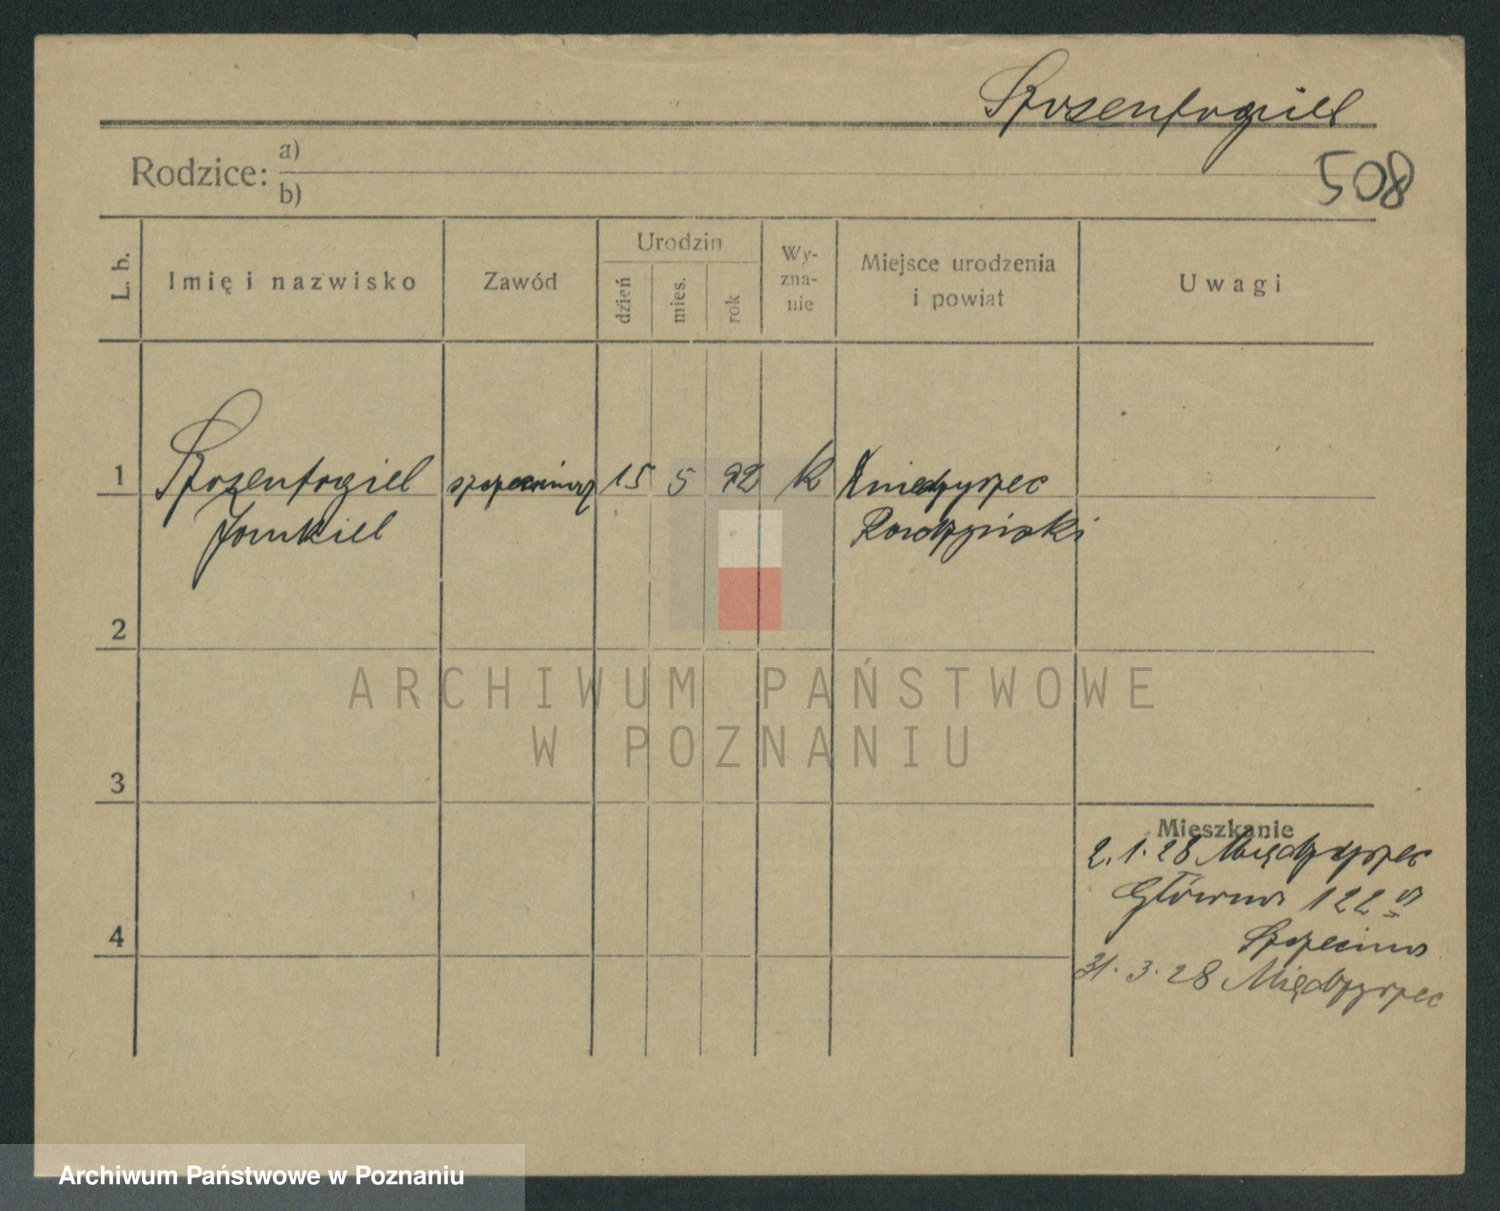 Rozenfogiel
Rodzice: a)
b)
508
L. b. Imię i nazwisko Zawód Urodzin dzień mies. rok Wy-zna-nie Miejsce urodzenia i powiat Uwagi
1 Rozenfogiel 15 5 92
Jankiel Radzyński
2
ARCHIWUM PAŃSTWOWE
W POZNANIU
3
Mieszkanie
2.1.28 Międzyrzec
4 Główna 122
31.3.28 Międzyrzec
Archiwum Państwowe w Poznaniu